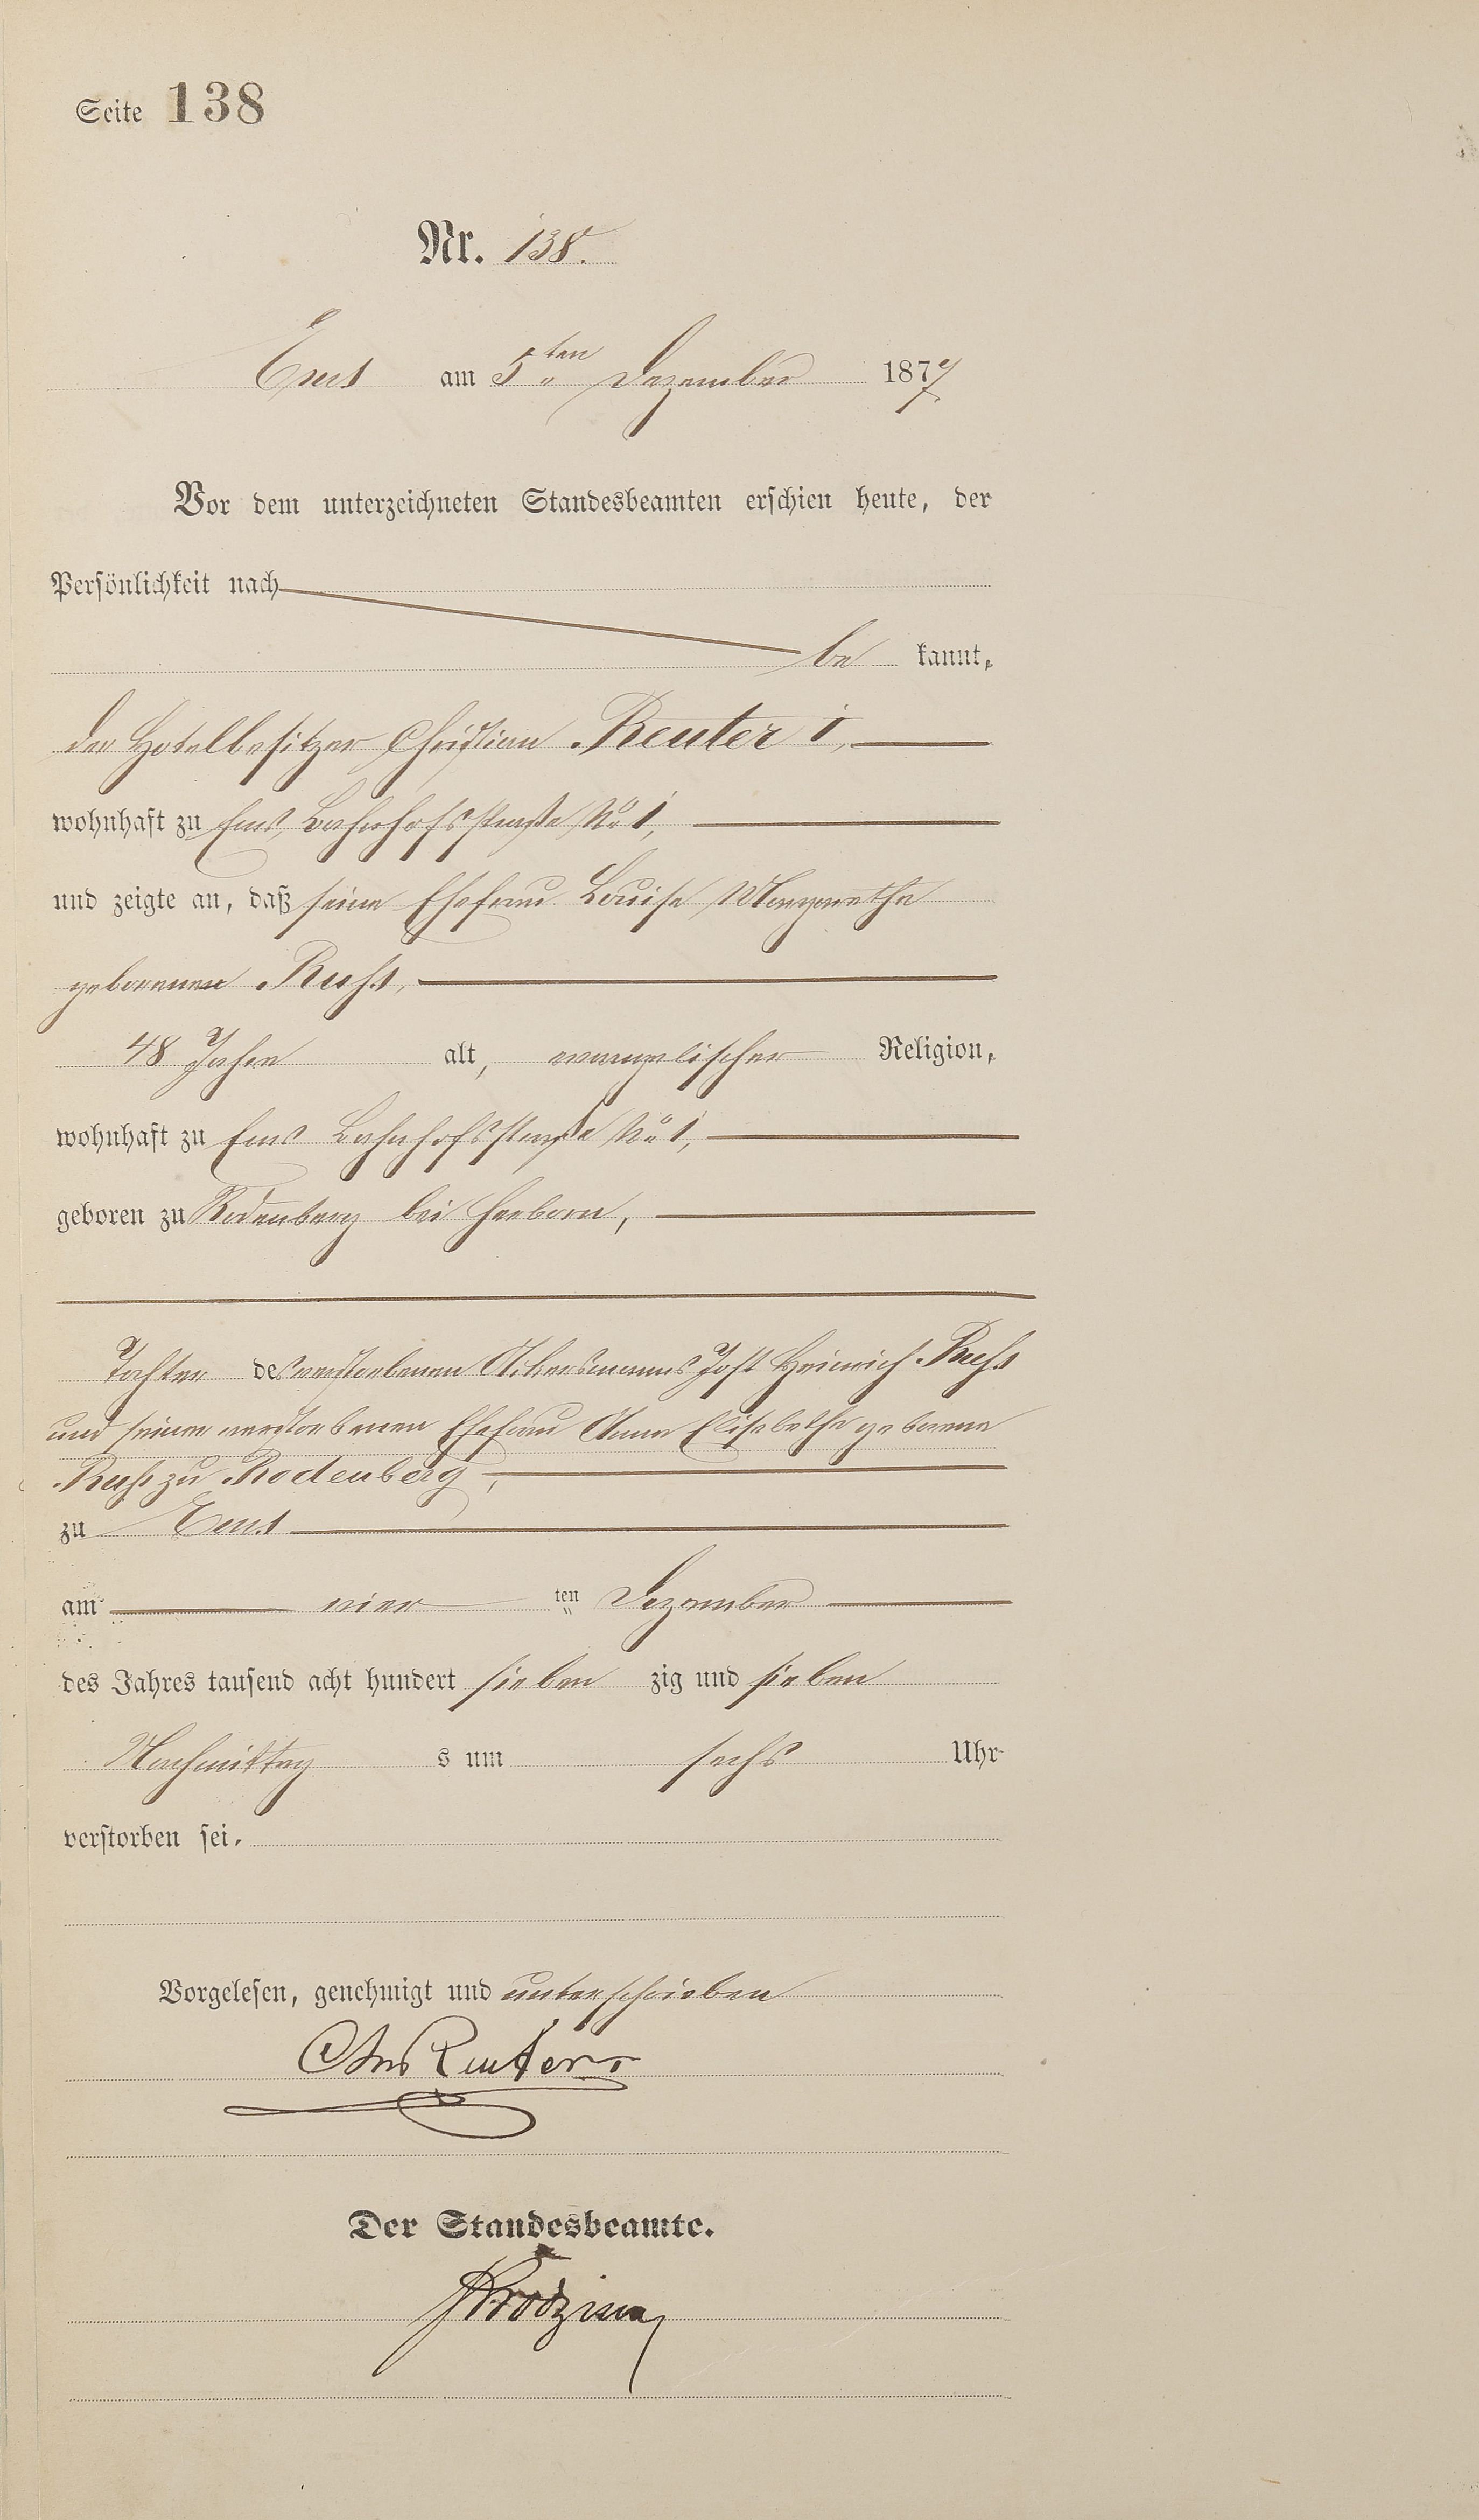 Seite 138
Nr. 138.
Ems am 5ten Dezember 1877
Vor dem unterzeichneten Standesbeamten erschien heute, der
Persönlichkeit nach
be kannt,
der Hotelbesitzer Christian Reuter I,
wohnhaft zu Ems, Bahnhofsstraße No 1,
und zeigte an, daß seine Ehefrau Louise Margarethe
geborenen Ruhs,
48 Jahre alt, evangelischer Religion,
wohnhaft zu Ems Bahnhofsstraße No 1,
geboren zu Rodenberg bei Herborn,
Tochter des verstorbenen Ackersmanns Jost Heinrich Ruhs
und seiner verstorbenen Ehefrau Anna Elisabetha geborene
Ruhs zu Rodenberg,
zu Ems
am vier ten Dezember
des Jahres tausend acht hundert sieben zig und sieben
Nachmittag s um sechs Uhr
verstorben sei.
Vorgelesen, genehmigt und unterschrieben
Chr Reuter I
Der Standesbeamte.